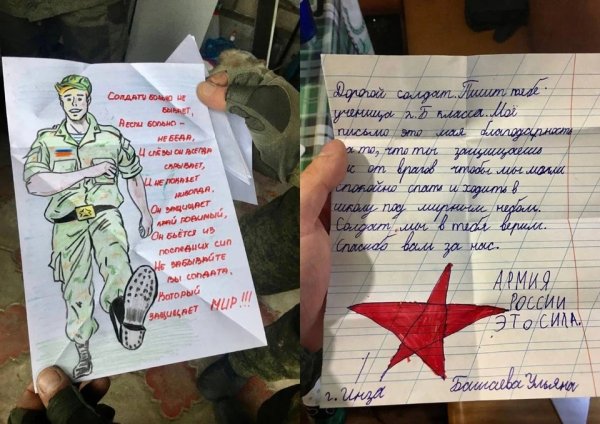 Солдату больно не
бывает,
А если больно –
не беда,
И слёзы он всегда
скрывает,
И не покажет
никогда,
Он защищает
край родимый,
Он бьётся из
последних сил
Не забывайте
вы солдата,
Который
защищает МИР!!!
Дорогой солдат. Пишит тебе
ученица 2 "Б" класса. Моё
письмо это моя благодарность
за то, что ты защищаешь
нас от врагов чтобы мы могли
спокойно спать и ходить в
школу под мирным небом.
Солдат, мы в тебя верим.
Спасибо вам за нас.
АРМИЯ
РОССИИ
ЭТО СИЛА.
г. Инза
Ульяна